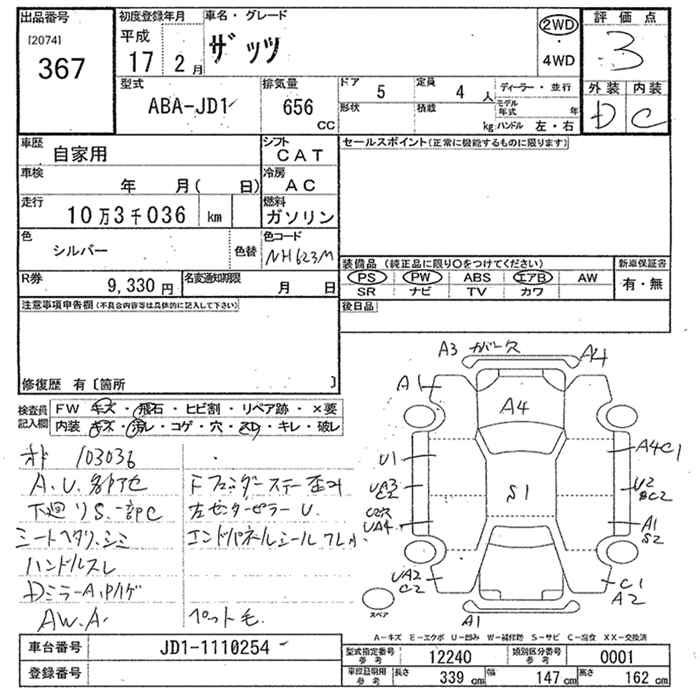 出品番号
[2074]
367
初度登録年月
平成
17 2月
車名・グレード
ザッツ
2WD
4WD
評価点
3
外装 内装
D C
型式
ABA-JD1
排気量
656
CC
ドア
5
定員
4 人
形状
積載
kg
ディーラー・並行
モデル年式 年
ハンドル 左・右
車歴
自家用
シフト
CAT
セールスポイント(正常に機能するものに限ります)
車検
年 月( 日)
冷房
AC
走行
10万3千036 km
燃料
ガソリン
色
シルバー
色替
色コード
NH623M
装備品 (純正品に限り○をつけてください)
PS PW ABS エアB AW
SR ナビ TV カワ
新車保証書
有・無
R券
9,330円
名変通知期限
月 日
後日品
注意事項申告欄(不具合内容等は具体的に記入して下さい)
修復歴 有〔箇所 〕
検査員記入欄
FW キズ・飛石・ヒビ割・リペア跡・×要
内装 キズ・汚レ・コゲ・穴・スレ・キレ・破レ
オド 103036
A.U.各部色
下廻りS.一部C
シートヘタリ.シミ
ハンドルスレ
DミラーA.ハゲ
AW.A.
Fフェンダーステー歪み
左センターピラーU.
エンドパネルシールワレ
ペット毛
A3 ガバース
A4
A1
A4
A4C1
U1
UA3
C2
S1
U2
UA4
A1
S2
UA2
C2
C1
A2
A1
スペア
A-キズ E-エクボ U-凹み W-補修跡 S-サビ C-腐食 XX-交換済
車台番号
JD1-1110254
登録番号
型式指定番号
参考
12240
類別区分番号
参考
0001
車両証明用
参考
長さ
339 cm
幅
147 cm
高さ
162 cm